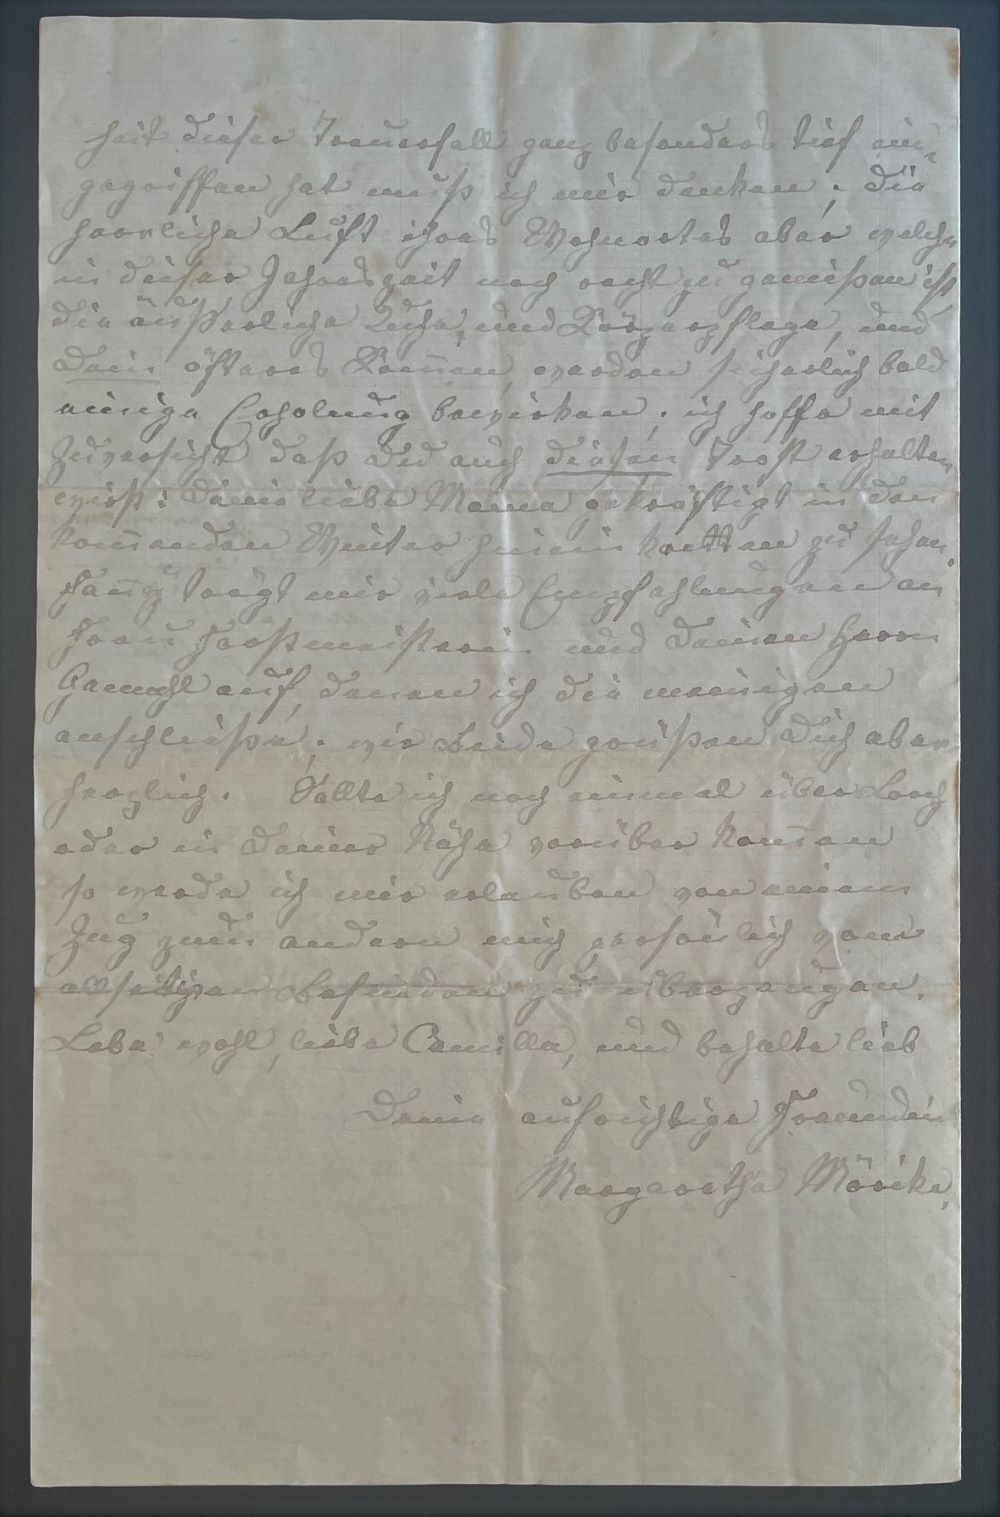 heit dieser Trauerfall ganz besonders tief ein-
gegriffen hat muß ich mir denken; die
herrliche Luft ihres Wohnortes aber welche
in dieser Jahreszeit noch recht zu genießen ist,
die äußerliche Ruhe, und Körperpflege, und
Dein öfteres Kommen, werden sicherlich bald
einige Erholung bewirken; ich hoffe mit
Zuversicht daß Du auch diesen Trost erhalten
wirst: Deine liebe Mama gekräftigt in den
kommenden Winter hinein tretten zu sehen.
Fanny trägt mir viele Empfehlungen an
Frau Forstmeisterin und Deinen Herrn
Gemahl auf, denen ich die meinigen
anschließe; wir Beide grüßen Dich aber
herzlich. Sollte ich noch einmal über Lorch
oder in Deiner Nähe vorüber kommen
so werde ich mir erlauben von einem
Zug zum andern mich persönlich vom
allseitigen Befinden zu überzeugen.
Lebe wohl, liebe Camilla, und behalte lieb
Deine aufrichtige Freundin
Margarethe Mörike.